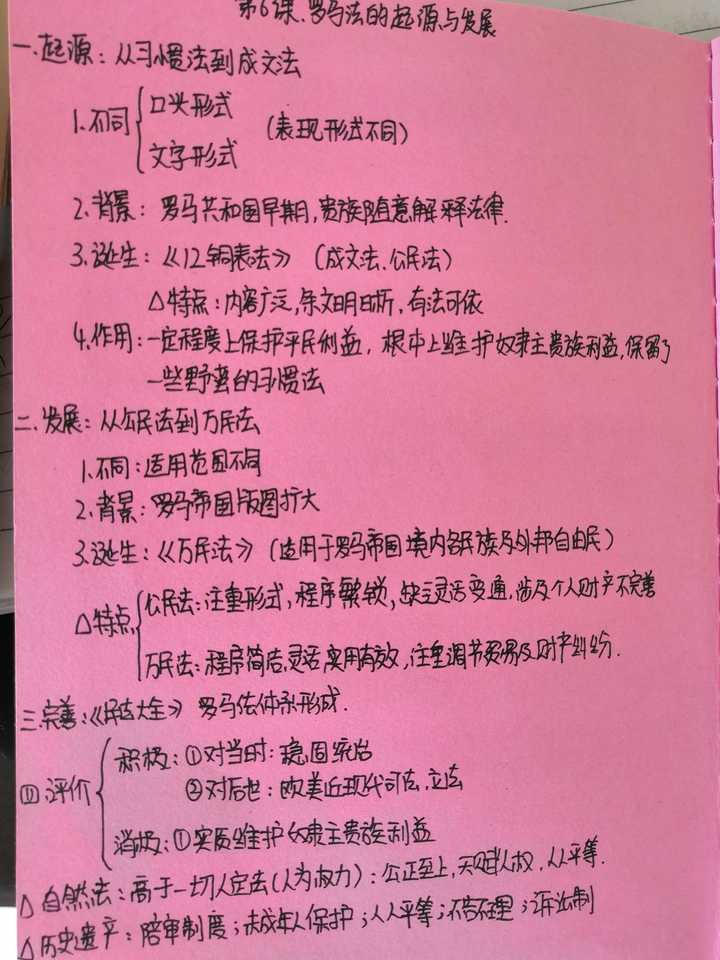 第6课.罗马法的起源与发展
一.起源：从习惯法到成文法
口头形式
1.不同 (表现形式不同)
文字形式
2.背景：罗马共和国早期,贵族随意解释法律.
3.诞生：《12铜表法》（成文法、公民法）
△特点：内容广泛,条文明晰，有法可依
4.作用：一定程度上保护平民利益，根本上维护奴隶主贵族利益,保留了
一些野蛮的习惯法
二、发展：从公民法到万民法
1.不同：适用范围不同
2.背景：罗马帝国版图扩大
3.诞生：《万民法》（适用于罗马帝国境内各民族及外邦自由民）
公民法：注重形式，程序繁锁，缺乏灵活变通，涉及个人财产不完善
△特点
万民法：程序简洁,灵活实用有效,注重调节贸易及财产纠纷.
三.完善：《民法大全》 罗马法体系形成.
积极：①对当时：稳固统治
四.评价 ②对后世：欧美近现代司法,立法
消极：①实质维护奴隶主贵族利益
△自然法：高于一切人定法(人为权力)：公正至上,天赋人权,人人平等.
△历史遗产：陪审制度；未成年人保护；人人平等；不告不理；诉讼制